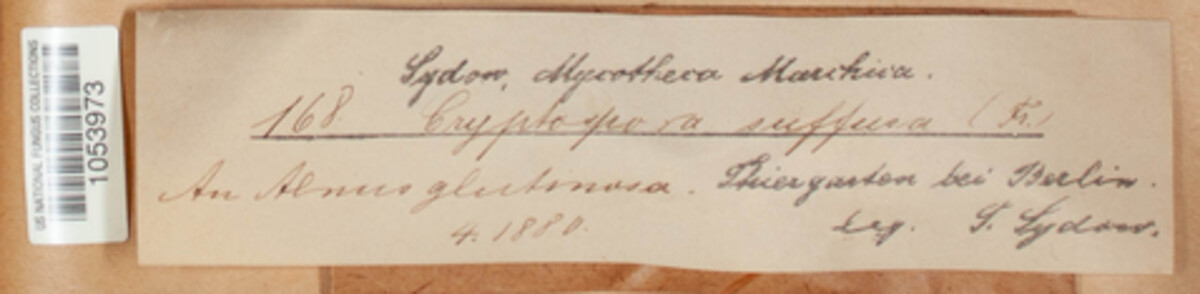 US NATIONAL FUNGUS COLLECTIONS
1053973
Sydow, Mycotheca Marchica.
168. Cryptospora suffusa (Fr.)
An Alnus glutinosa. Thiergarten bei Berlin.
4. 1880. Leg. P. Sydow.